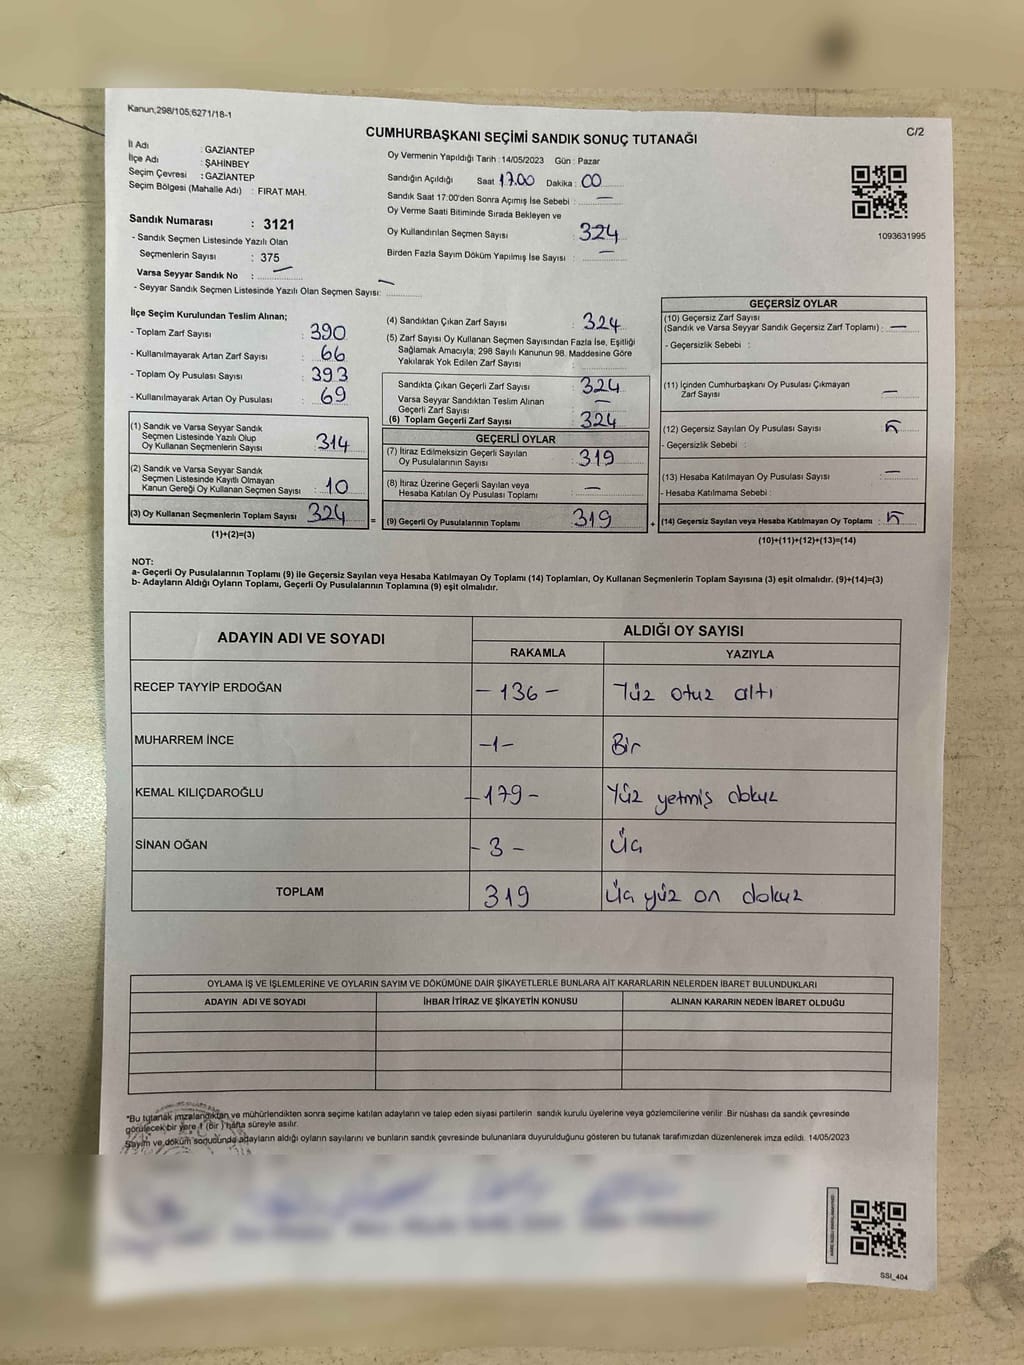 Kanun,298/105;6271/18-1
C/2
CUMHURBAŞKANI SEÇİMİ SANDIK SONUÇ TUTANAĞI
İl Adı : GAZİANTEP
İlçe Adı : ŞAHİNBEY
Seçim Çevresi : GAZİANTEP
Seçim Bölgesi (Mahalle Adı) : FIRAT MAH.
Sandık Numarası : 3121
- Sandık Seçmen Listesinde Yazılı Olan
Seçmenlerin Sayısı : 375
Varsa Seyyar Sandık No : —
- Seyyar Sandık Seçmen Listesinde Yazılı Olan Seçmen Sayısı: —
Oy Vermenin Yapıldığı Tarih : 14/05/2023 Gün : Pazar
Sandığın Açıldığı Saat 17.00 Dakika : 00
Sandık Saat 17:00'den Sonra Açımış İse Sebebi : —
Oy Verme Saati Bitiminde Sırada Bekleyen ve
Oy Kullandırılan Seçmen Sayısı : 324
Birden Fazla Sayım Döküm Yapılmış İse Sayısı : —
1093631995
İlçe Seçim Kurulundan Teslim Alınan;
- Toplam Zarf Sayısı : 390
- Kullanılmayarak Artan Zarf Sayısı : 66
- Toplam Oy Pusulası Sayısı : 393
- Kullanılmayarak Artan Oy Pusulası : 69
(1) Sandık ve Varsa Seyyar Sandık
Seçmen Listesinde Yazılı Olup
Oy Kullanan Seçmenlerin Sayısı : 314
(2) Sandık ve Varsa Seyyar Sandık
Seçmen Listesinde Kayıtlı Olmayan
Kanun Gereği Oy Kullanan Seçmen Sayısı : 10
(3) Oy Kullanan Seçmenlerin Toplam Sayısı : 324
(1)+(2)=(3)
(4) Sandıktan Çıkan Zarf Sayısı : 324
(5) Zarf Sayısı Oy Kullanan Seçmen Sayısından Fazla İse, Eşitliği
Sağlamak Amacıyla; 298 Sayılı Kanunun 98. Maddesine Göre
Yakılarak Yok Edilen Zarf Sayısı :
Sandıkta Çıkan Geçerli Zarf Sayısı : 324
Varsa Seyyar Sandıktan Teslim Alınan
Geçerli Zarf Sayısı : —
(6) Toplam Geçerli Zarf Sayısı : 324
GEÇERLİ OYLAR
(7) İtiraz Edilmeksizin Geçerli Sayılan
Oy Pusulalarının Sayısı : 319
(8) İtiraz Üzerine Geçerli Sayılan veya
Hesaba Katılan Oy Pusulası Toplamı : —
= (9) Geçerli Oy Pusulalarının Toplamı : 319
GEÇERSİZ OYLAR
(10) Geçersiz Zarf Sayısı
(Sandık ve Varsa Seyyar Sandık Geçersiz Zarf Toplamı) : —
- Geçersizlik Sebebi :
(11) İçinden Cumhurbaşkanı Oy Pusulası Çıkmayan
Zarf Sayısı : —
(12) Geçersiz Sayılan Oy Pusulası Sayısı : 5
- Geçersizlik Sebebi :
(13) Hesaba Katılmayan Oy Pusulası Sayısı : —
- Hesaba Katılmama Sebebi :
+ (14) Geçersiz Sayılan veya Hesaba Katılmayan Oy Toplamı : 5
(10)+(11)+(12)+(13)=(14)
NOT:
a- Geçerli Oy Pusulalarının Toplamı (9) ile Geçersiz Sayılan veya Hesaba Katılmayan Oy Toplamı (14) Toplamları, Oy Kullanan Seçmenlerin Toplam Sayısına (3) eşit olmalıdır. (9)+(14)=(3)
b- Adayların Aldığı Oyların Toplamı, Geçerli Oy Pusulalarının Toplamına (9) eşit olmalıdır.
ADAYIN ADI VE SOYADI
ALDIĞI OY SAYISI
RAKAMLA YAZIYLA
RECEP TAYYİP ERDOĞAN - 136 - Yüz otuz altı
MUHARREM İNCE -1- Bir
KEMAL KILIÇDAROĞLU - 179 - Yüz yetmiş dokuz
SİNAN OĞAN - 3 - Üç
TOPLAM 319 Üç yüz on dokuz
OYLAMA İŞ VE İŞLEMLERİNE VE OYLARIN SAYIM VE DÖKÜMÜNE DAİR ŞİKAYETLERLE BUNLARA AİT KARARLARIN NELERDEN İBARET BULUNDUKLARI
ADAYIN ADI VE SOYADI İHBAR İTİRAZ VE ŞİKAYETİN KONUSU ALINAN KARARIN NEDEN İBARET OLDUĞU
*Bu tutanak imzalandıktan ve mühürlendikten sonra seçime katılan adayların ve talep eden siyasi partilerin sandık kurulu üyelerine veya gözlemcilerine verilir .Bir nüshası da sandık çevresinde
görülecek bir yere 1 (bir ) hafta süreyle asılır.
Sayım ve döküm sonucunda adayların aldığı oyların sayılarını ve bunların sandık çevresinde bulunanlara duyurulduğunu gösteren bu tutanak tarafımızdan düzenlenerek imza edildi. 14/05/2023
SSI_404